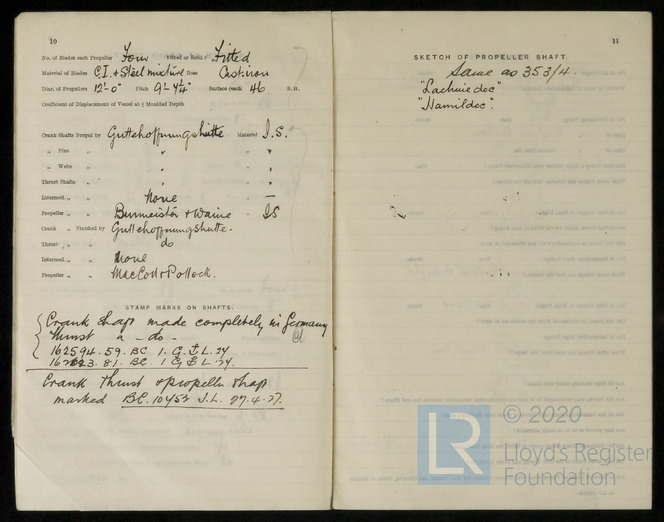 10
No. of Blades each Propeller Four Fitted or Solid? Fitted
Material of Blades C.I. & Steel mixture Boss Cast iron
Diar. of Propellers 12'-0" Pitch 9'-4¼" Surface (each 46 S. ft.
Coefficient of Displacement of Vessel at ½ Moulded Depth
Crank Shafts Forged by Guttehoffnungshutte Material I.S.
„ Pins „ „ „ „
„ Webs „ „ „ „
Thrust Shafts „ „ „ „
Intermed. „ „ None „ —
Propeller „ „ Burmeister & Waine „ IS
Crank „ Finished by Guttehoffnungshutte.
Thrust „ „ do
Intermed. „ „ None
Propeller „ „ MacColl & Pollock.
STAMP MARKS ON SHAFTS.
Crank shaft made completely in Germany
Thrust " - do -
162594. 59. BC 1. G.L. 24
81. BC. 1 G L. 24.
Crank Thrust & propeller shaft
marked BC. 10453 J.L. 27.4.27.
11
SKETCH OF PROPELLER SHAFT.
Same as 353/4.
"Lachinedoc"
"Hamildoc".
LR © 2020
Lloyd's Register
Foundation